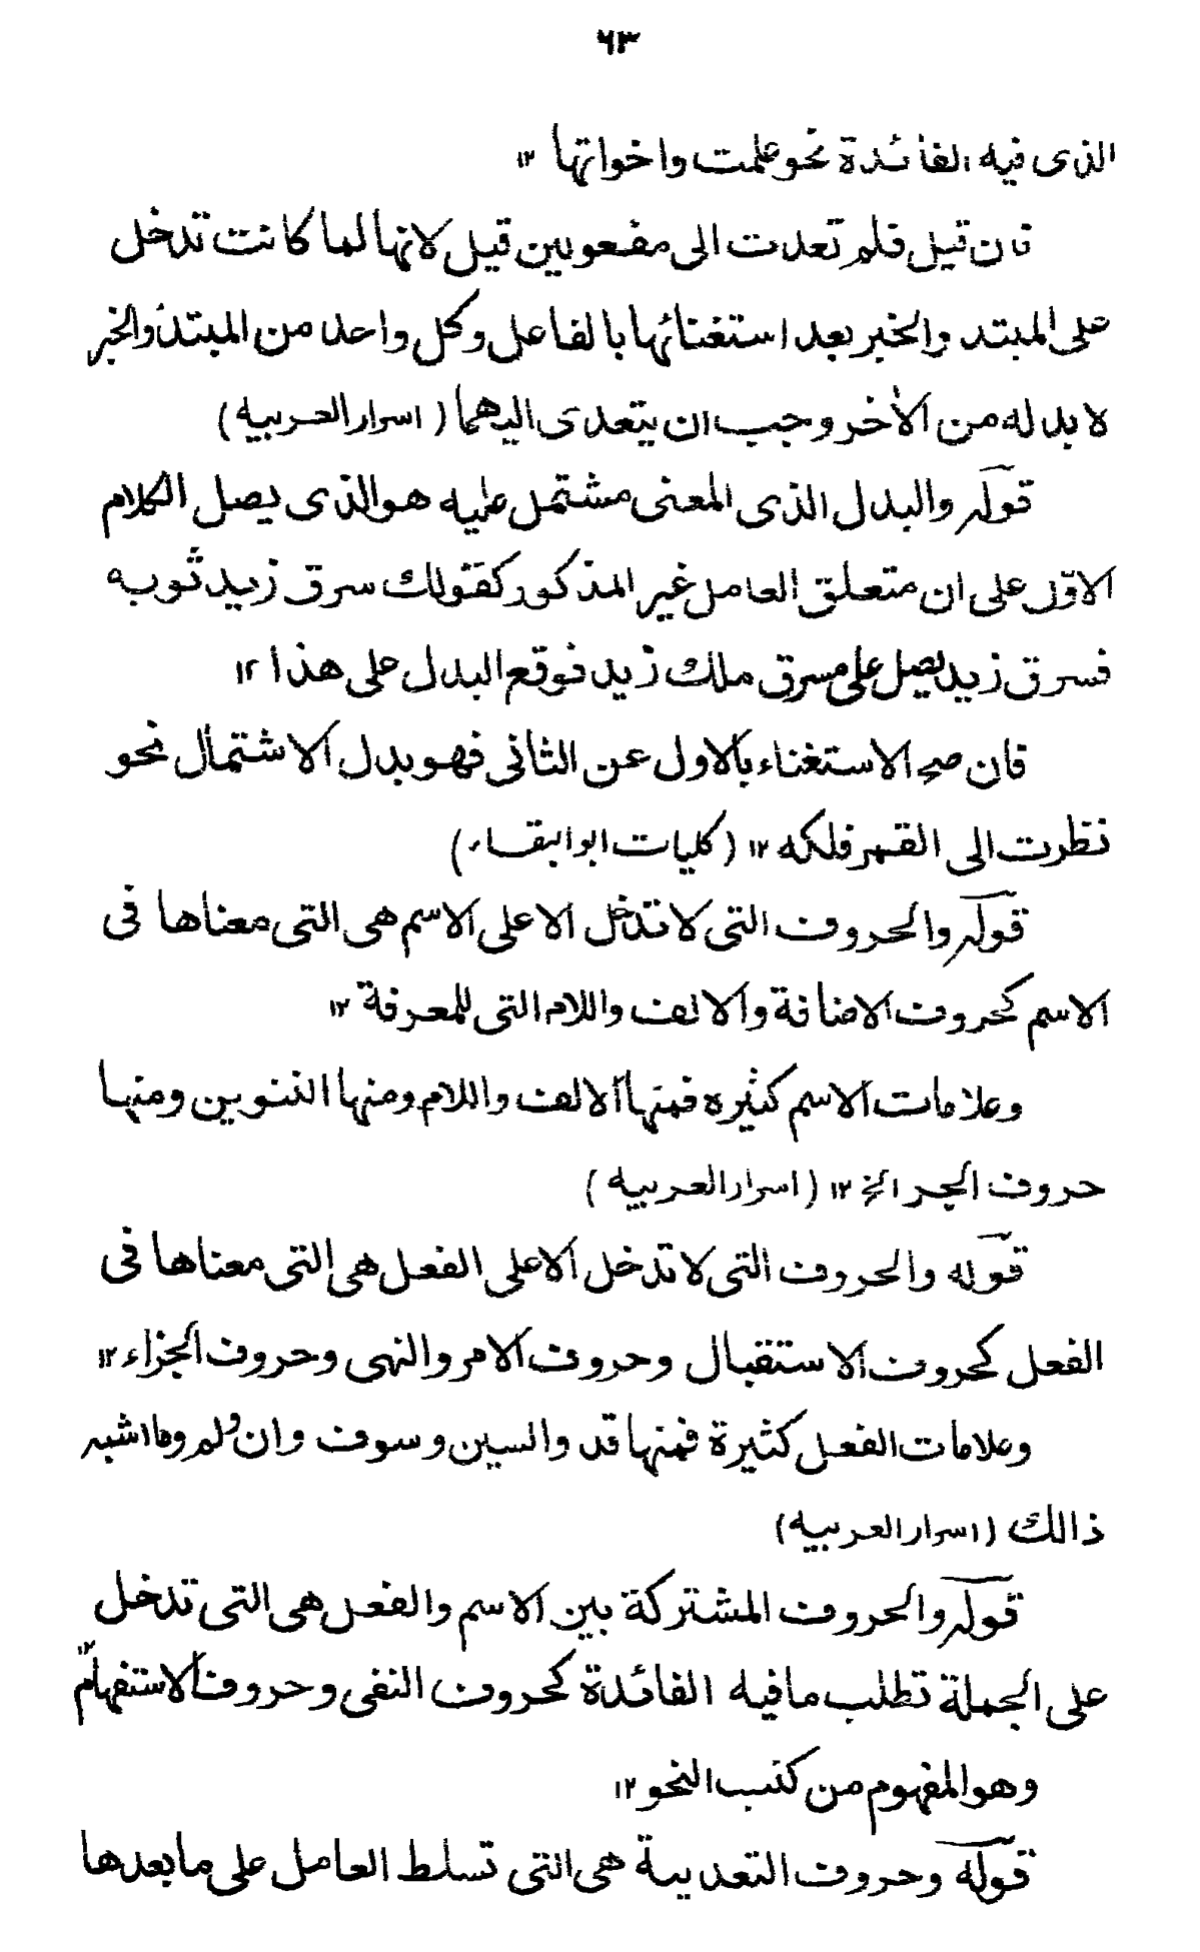 ٦٣
الذى فيه الفائدة نحو علمت واخواتها ١٢
فان قيل فلم تعدت الى مفعولين قيل لانها لما كانت تدخل
على المبتد والخبر بعد استغنائها بالفاعل وكل واحد من المبتدأ والخبر
لا بد له من الأخر وجب ان يتعدى اليهما (اسرار العربيه)
قوله والبدل الذى المعنى مشتمل عليه هو الذى يصل الكلام
الاوّل على ان متعلق العامل غير المذكور كقولك سرق زيد ثوبه
فسرق زيد يصل على مسرق ملك زيد فوقع البدل على هذا ١٢
فان صح الاستغناء بالاول عن الثانى فهو بدل الاشتمال نحو
نظرت الى القمر فلكه ١٢ (كليات ابو البقاء)
قوله والحروف التى لا تدخل الا على الاسم هى التى معناها فى
الاسم كحروف الاضافة والالف واللام التى للمعرفة ١٢
وعلامات الاسم كثيره فمنها الالف واللام ومنها التنوين ومنها
حروف الجر الخ ١٢ (اسرار العربيه)
قوله والحروف التى لا تدخل الا على الفعل هى التى معناها فى
الفعل كحروف الاستقبال وحروف الامر والنهى وحروف الجزاء ١٢
وعلامات الفعل كثيرة فمنها قد والسين وسوف وان ولم وما اشبه
ذالك (اسرار العربيه)
قوله والحروف المشتركة بين الاسم والفعل هى التى تدخل
على الجملة تطلب ما فيه الفائدة كحروف النفى وحروف الاستفهام ١٢
وهو المفهوم من كتب النحو ١٢
قوله وحروف التعدية هى التى تسلط العامل على ما بعدها